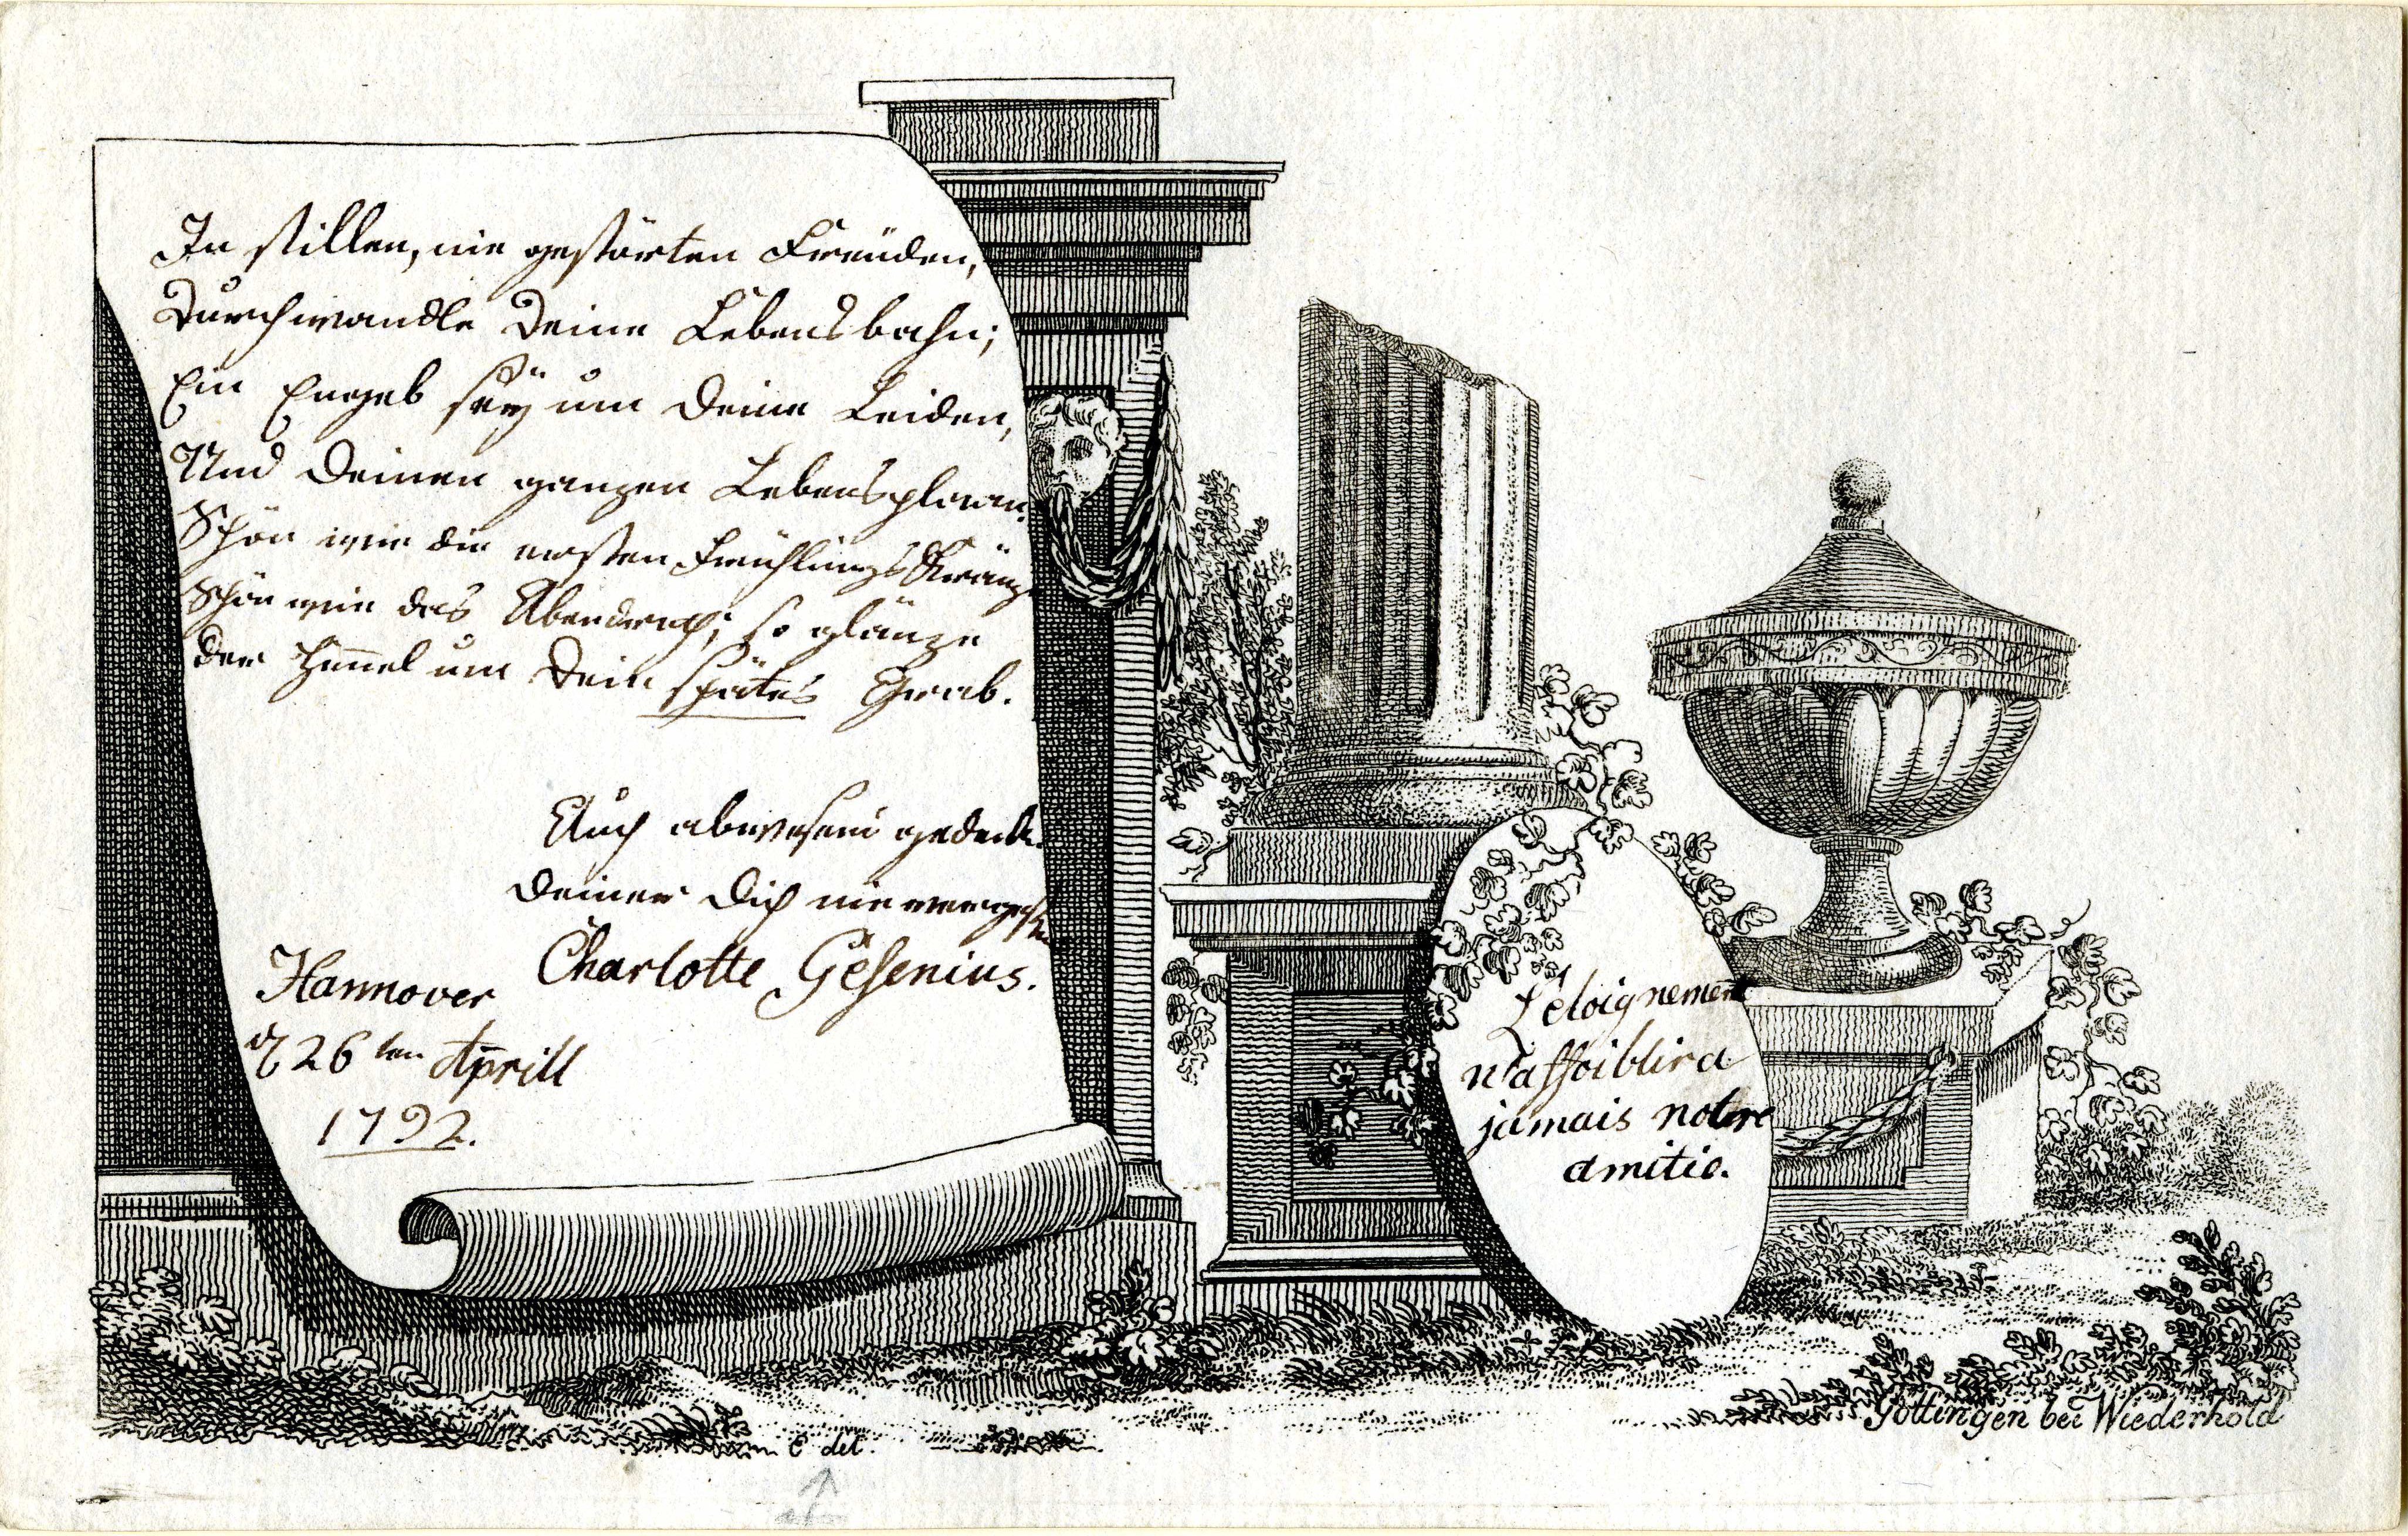 In stillen, nie gestörten Freuden,
Durchwandle Deine Lebensbahn;
Ein Engel seÿ um Deine Leiden,
Und Deinen ganzen Lebensplan.
Schön wie die ersten Frühlings Kränze
Schön wie das Abendroth; so glänze
der Him̄el um Dein spätes Grab.
Auch abwesend gedenke
Deiner Dich nie vergeßende
Charlotte Gesenius.
Hannover
d 26ten Aprill
1792.
L'eloignement
n'affoiblira
jamais notre
amitié.
C del.
Göttingen bei Wiederhold